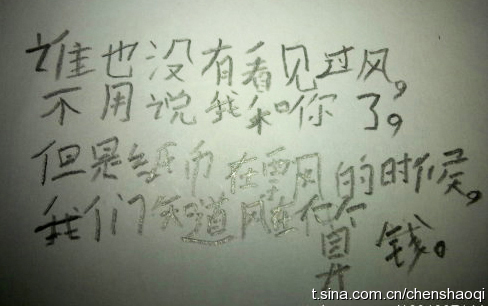 谁也没有看见过风，
不用说我和你了。
但是纸币在飘的时候，
我们知道风在算钱。
t.sina.com.cn/chenshaoqi